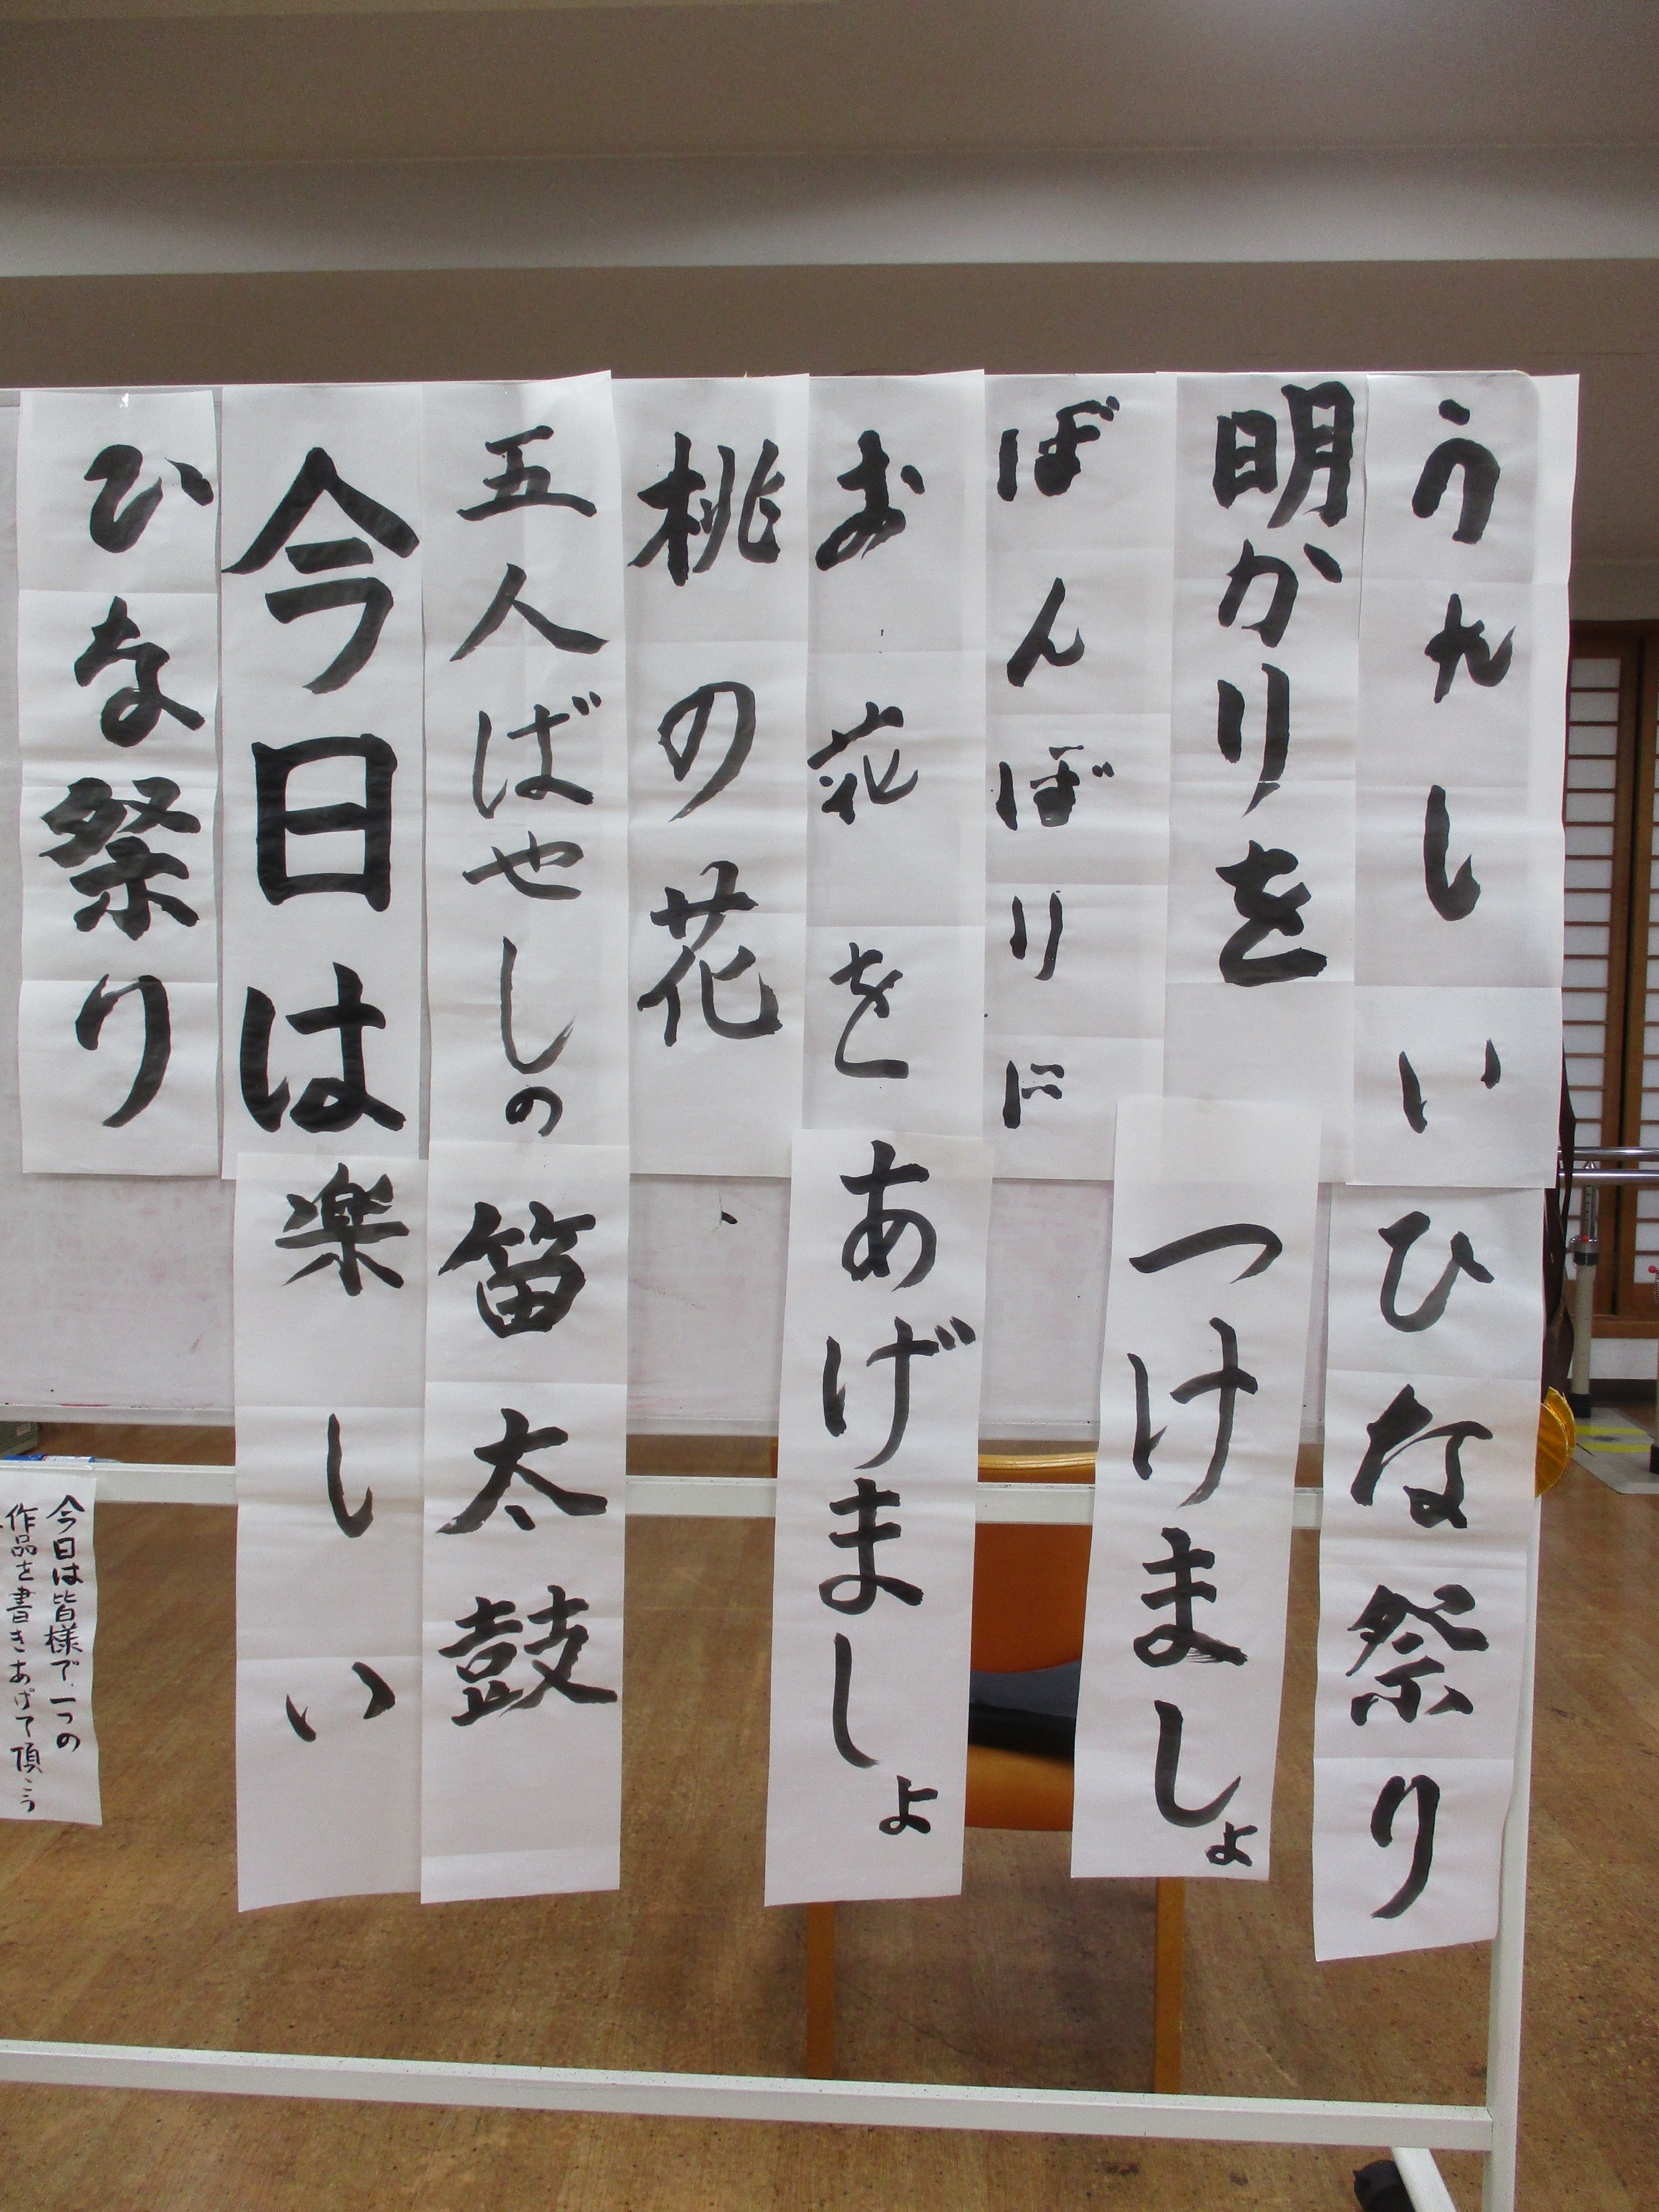 うれしいひな祭り
明かりをつけましょ
ぼんぼりに
お花をあげましょ
桃の花
五人ばやしの笛太鼓
今日は楽しい
ひな祭り
今日は皆様で一つの
作品を書きあげて頂こう